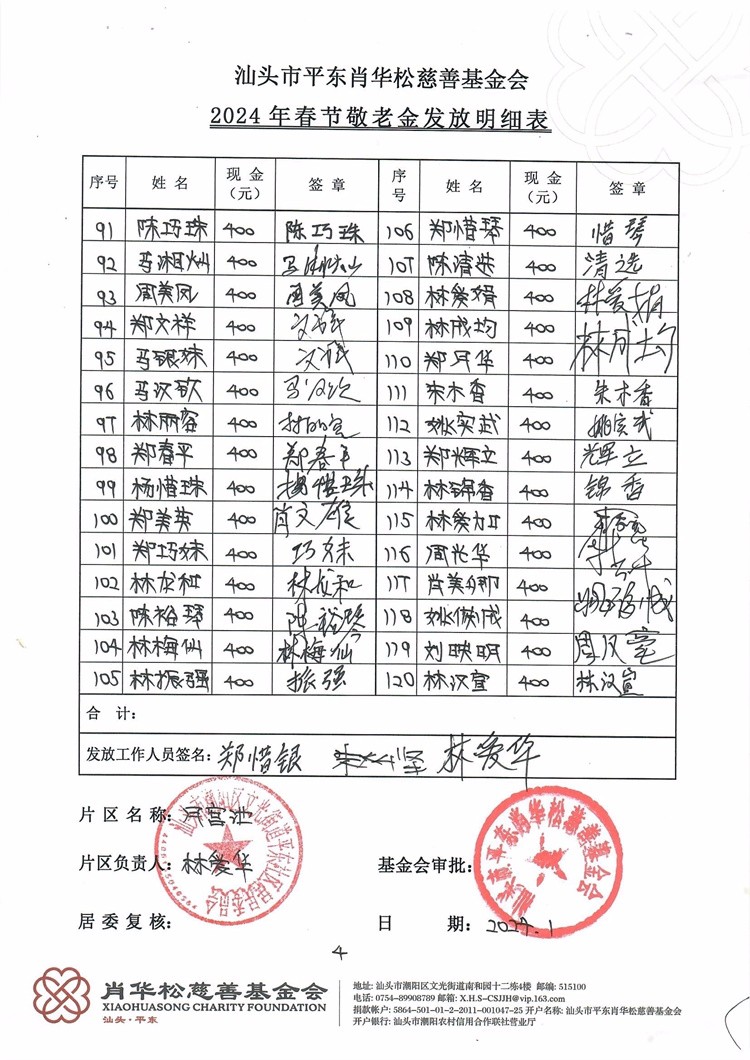 汕头市平东肖华松慈善基金会
2024年春节敬老金发放明细表
序号 姓名 现金（元） 签章 序号 姓名 现金（元） 签章
91 陈巧珠 400 陈巧珠 106 郑惜琴 400 惜琴
92 400 107 陈清选 400 清选
93 周美凤 400 周美凤 108 林爱娟 400 林爱娟
94 郑文祥 400 109 林成均 400 林成均
95 马银妹 400 110 郑月华 400
96 马汉钦 400 马汉钦 111 朱木香 400 朱木香
97 林丽容 400 112 姚实武 400 姚实武
98 郑春平 400 郑春平 113 郑辉立 400 辉立
99 杨惜珠 400 杨惜珠 114 林锦香 400 锦香
100 郑美英 400 肖文雄 115 400
101 郑巧妹 400 巧妹 116 周光华 400
102 林友和 400 林友和 117 肖美娜 400
103 陈裕琴 400 陈裕琴 118 400
104 林梅仙 400 林梅仙 119 刘映明 400
105 林振强 400 振强 120 林汉宣 400 林汉宣
合 计：
发放工作人员签名：郑惜银 林爱华
片区名称：河宫池
片区负责人：林爱华 基金会审批：
居委复核： 日 期：2024.1
汕头市潮阳区文光街道平东社区居民委员会
汕头市平东肖华松慈善基金会
4
肖华松慈善基金会
XIAOHUASONG CHARITY FOUNDATION
汕头·平东
地址：汕头市潮阳区文光街道南和园十二栋4楼 邮编：515100
电话：0754-89908789 邮箱：X.H.S-CSJJH@vip.163.com
捐款帐户：5864-501-01-2-2011-001047-25 开户名称：汕头市平东肖华松慈善基金会
开户银行：汕头市潮阳农村信用合作联社营业厅